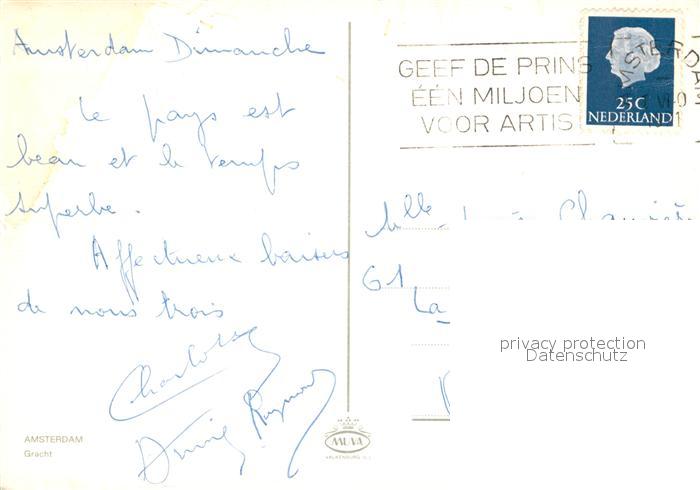 Amsterdam Dimanche
Le pays est
beau et le temps
superbe.
Affectueux baisers
de nous trois
Charlotte
Raymond
AMSTERDAM
Gracht
MUVA
VALKENBURG
GEEF DE PRINS
ÉÉN MILJOEN
VOOR ARTIS
25C
NEDERLAND
Mlle
61
La
privacy protection
Datenschutz